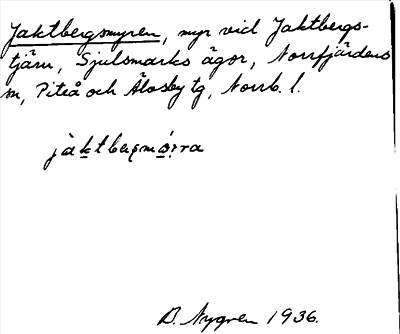 Jaktbergsmyren, myr vid Jaktbergs-
tjärn, Sjulsmarks ägor, Norrfjärdens
sn, Piteå och Älvsby tg, Norrb. l.
jàktbeŗmǿrra
B. Nygren 1936.